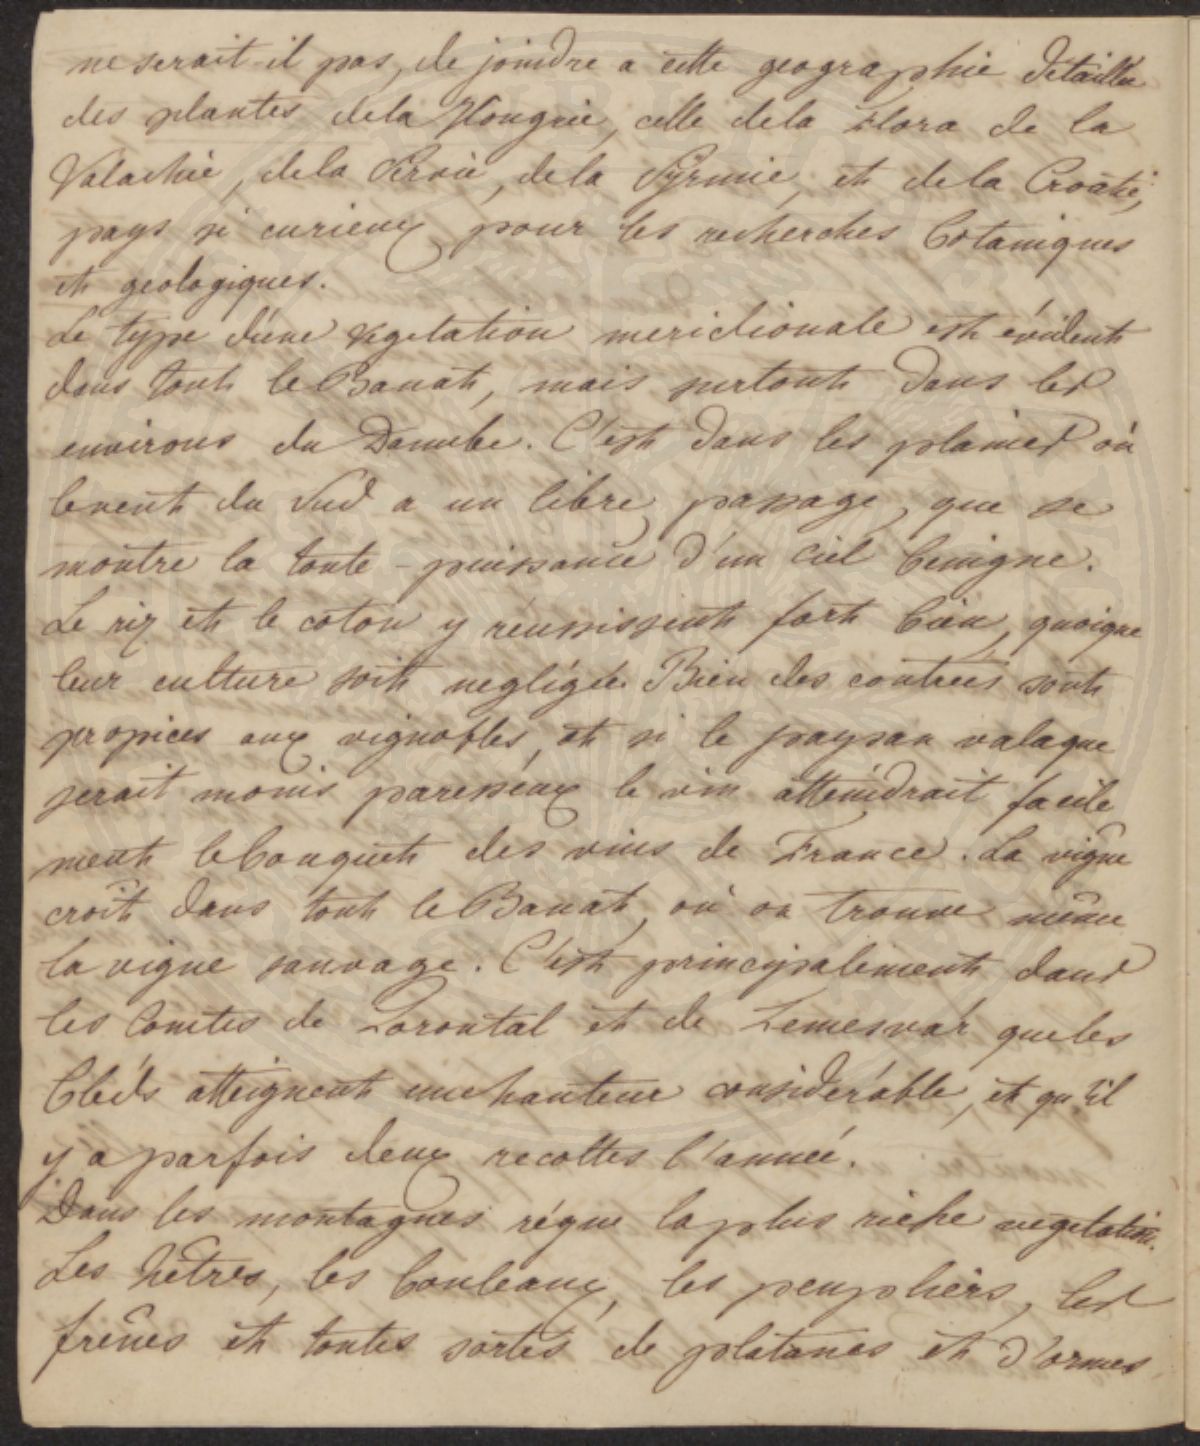 ne serait-il pas, de joindre a cette geographie détaillée
des plantes dela Hongrie, celle dela Flora de la
Valachie, dela Servie, dela Syrmie, et dela Croatie,
pays si curieux pour les recherches botaniques
et geologiques.
Le type d'une vgetation meridionale est évident
dans tout le Banat, mais surtout dans les
environs du Danube. C'est dans les plaines où
levent du Sud a un libre passage, que se
montre la toute-puissance d'un ciel benigne.
Le riz et le coton y réunissent fort bien, quoique
leur culture soit negligée. Bien des contrées sont
propices aux vignobles, et si le paysan valaque
serait moins paresséux le vin atteindrait facile
ment lebouquet des vins de France. La vigne
croît dans tout le Banat, où on trouve même
la vigne sauvage. C'est principalement dans
les Comtés de Torontal et de Temesvár queles
bleds atteignent unehauteur considérable, et qu'il
y a parfois deux recoltes l'année.
Dans les montagnes régne laplus riche vegetation.
Les hêtres, les bouleaux, les peupliers, les
frênes et toutes sortes de platanes et d'ormes